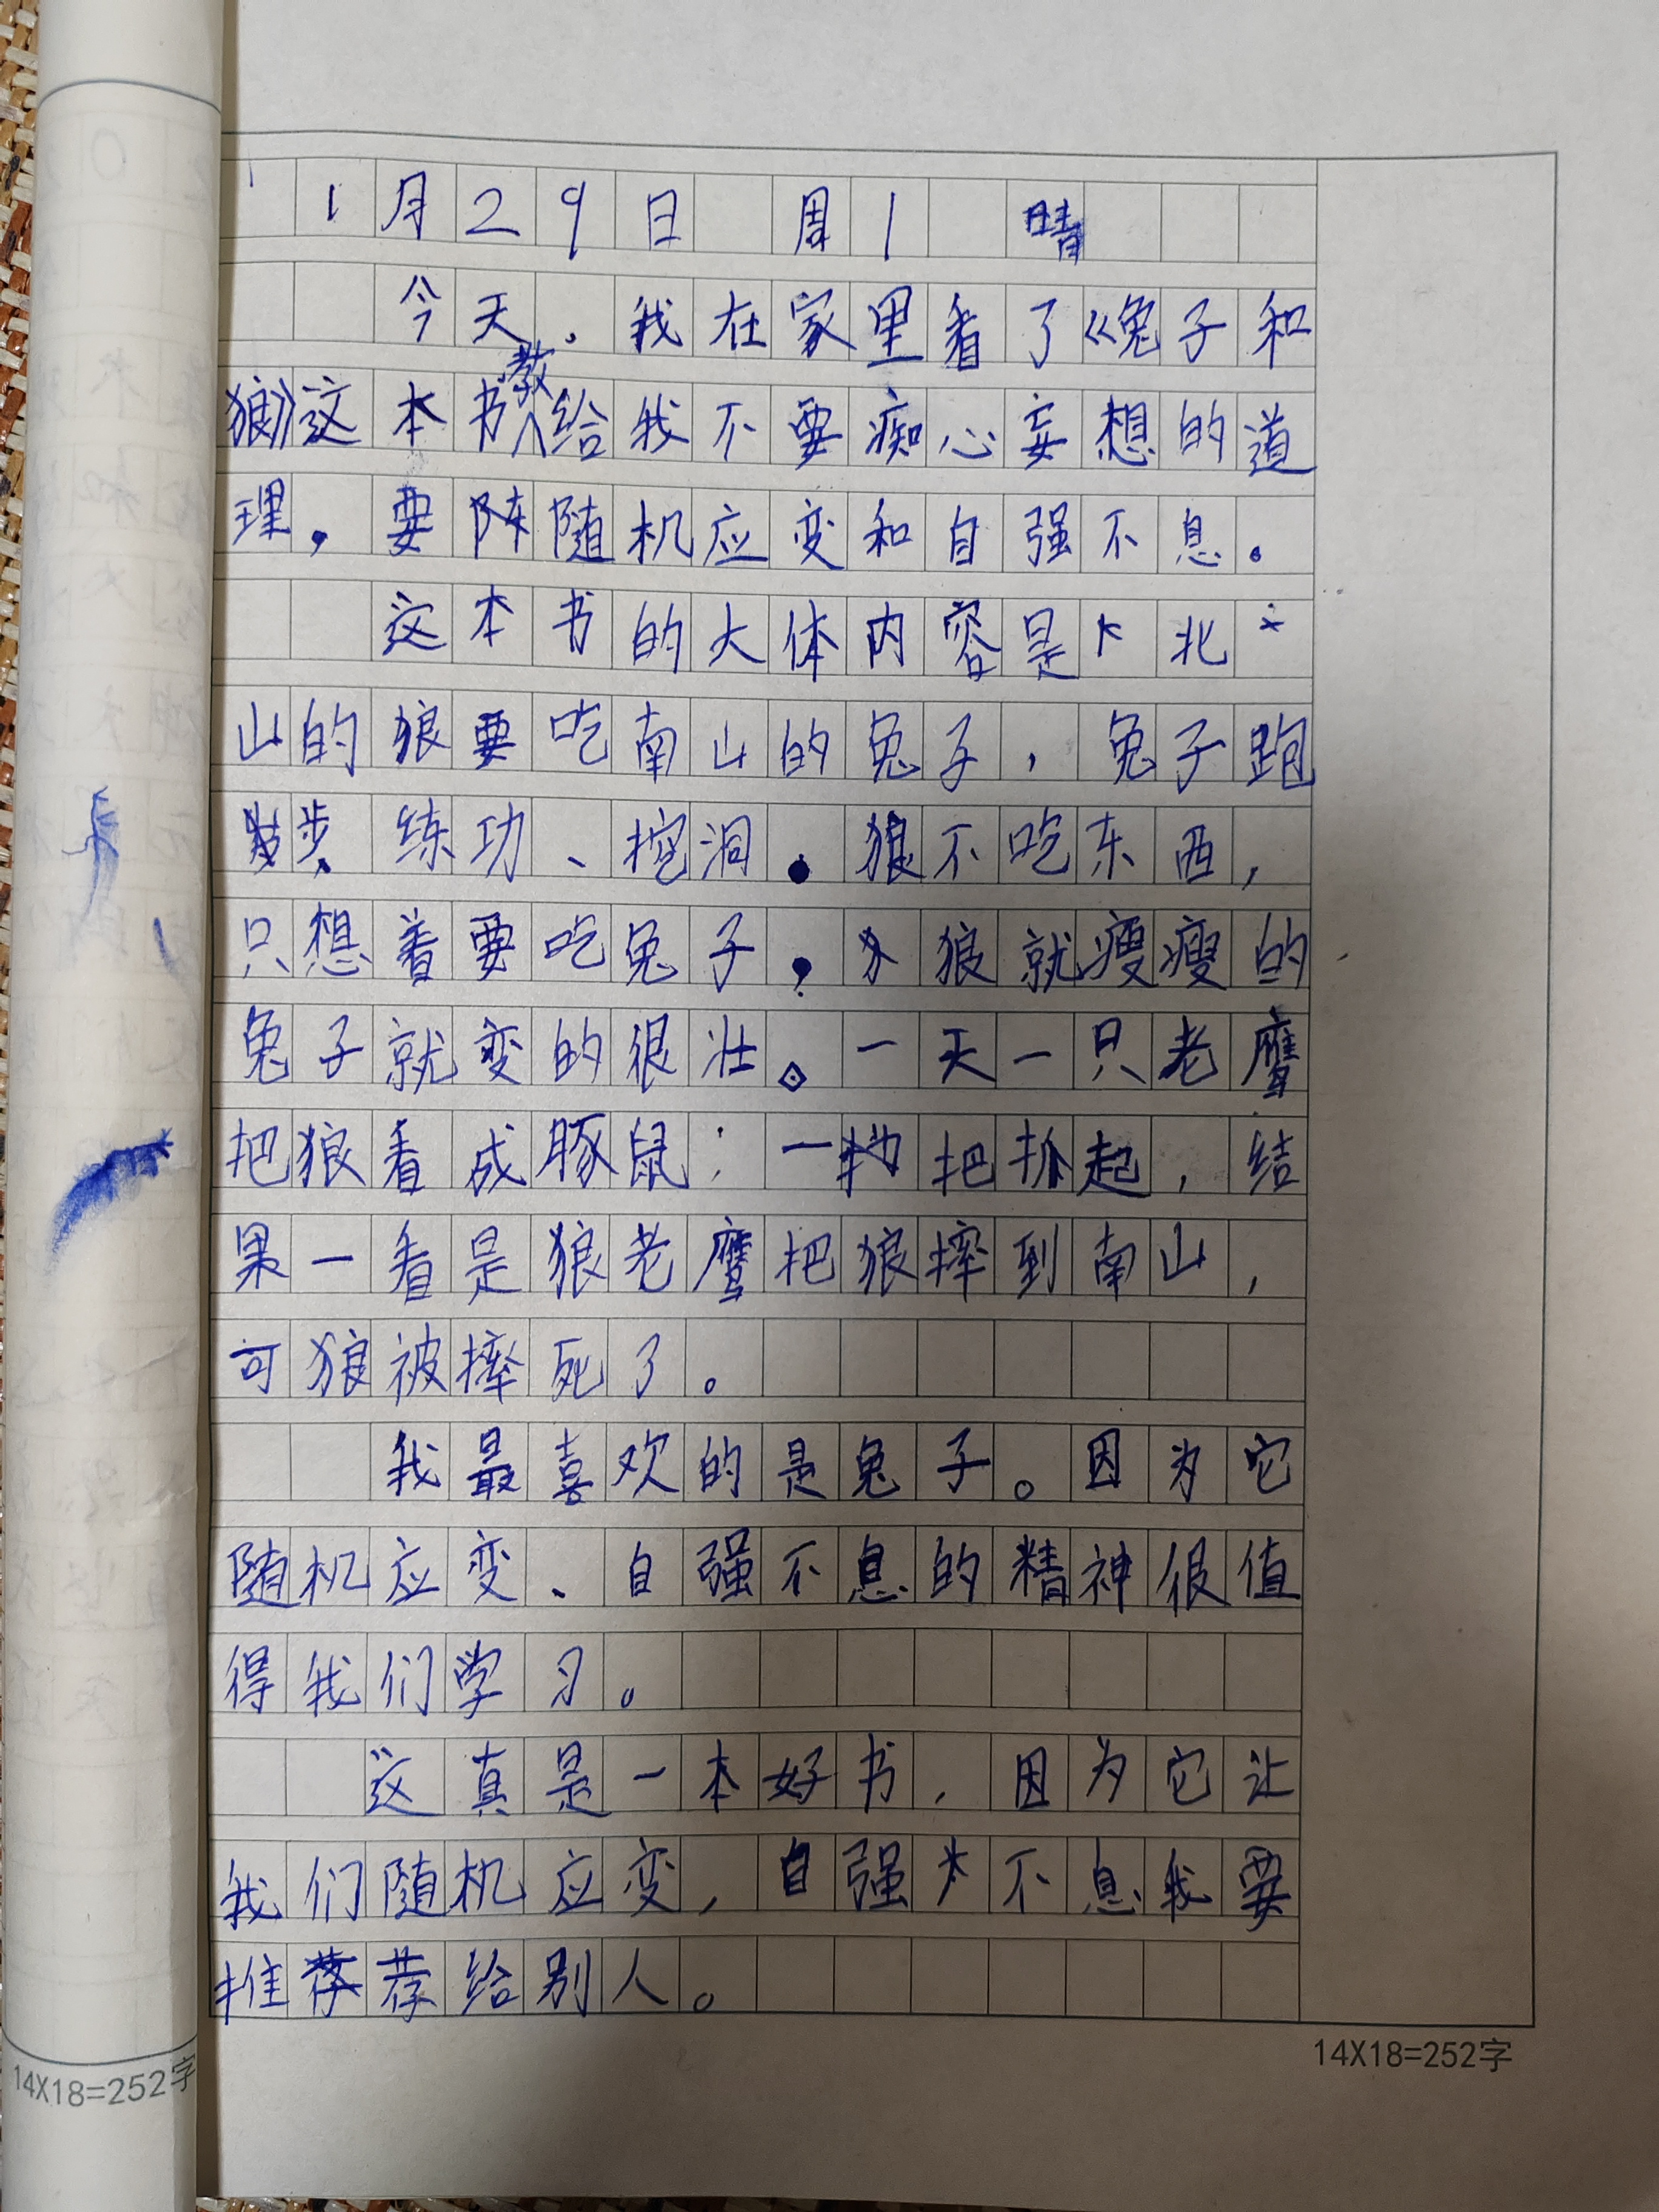 1月29日 周1 晴
今天,我在家里看了《兔子和
狼》这本书教给我不要痴心妄想的道
理,要随机应变和自强不息。
这本书的大体内容是北
山的狼要吃南山的兔子,兔子跑
步、练功、挖洞.狼不吃东西,
只想着要吃兔子,狼就瘦瘦的
兔子就变的很壮。一天一只老鹰
把狼看成豚鼠;一把抓起,结
果一看是狼老鹰把狼摔到南山,
可狼被摔死了。
我最喜欢的是兔子。因为它
随机应变、自强不息的精神很值
得我们学习。
这真是一本好书,因为它让
我们随机应变,自强不息我要
推荐给别人。
14X18=252字
14X18=252字